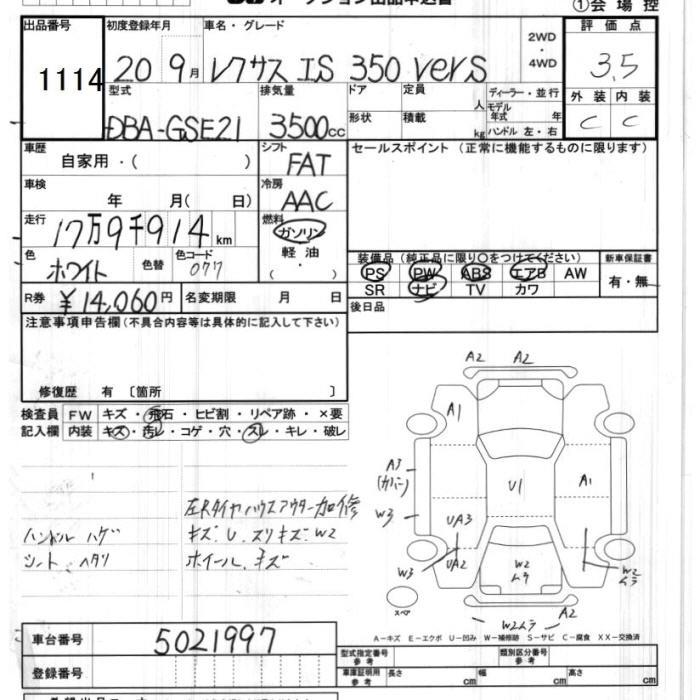 ①会場控
出品番号
1114
初度登録年月
20 9月
車名・グレード
レクサス IS 350 verS
2WD
・
4WD
評価点
3.5
外装 内装
C C
型式
DBA-GSE21
排気量
3500cc
ドア
定員
人
形状
積載
kg
ディーラー・並行
モデル年式 年
ハンドル 左・右
車歴
自家用・( )
シフト
FAT
セールスポイント (正常に機能するものに限ります)
車検
年 月( 日)
冷房
AAC
走行
17万9千914km
燃料
ガソリン
軽油
( ・ )
色
ホワイト
色替
色コード
077
装備品 (純正品に限り〇をつけてください)
PS PW ABS エアB AW
SR ナビ TV カワ
新車保証書
有・無
R券
¥14,060円
名変期限 月 日
後日品
注意事項申告欄(不具合内容等は具体的に記入して下さい)
修復歴 有 〔箇所 〕
検査員
記入欄
FW キズ・飛石・ヒビ割・リペア跡・×要
内装 キズ・汚レ・コゲ・穴・スレ・キレ・破レ
ハンドル ハゲ
シート ヘタリ
キズ. U. スリキズ. W2
ホイール. キズ
A2 A2
A1
A3
(カバー)
W3
U1
A1
UA3
UA2
W3
W2
ムラ
W2
ムラ
スペア
W2ムラ
A2
A-キズ E-エクボ U-凹み W-補修跡 S-サビ C-腐食 XX-交換済
車台番号
5021997
登録番号
型式指定番号
参考
類別区分番号
参考
車庫証明用
参考
長さ cm
幅 cm
高さ cm